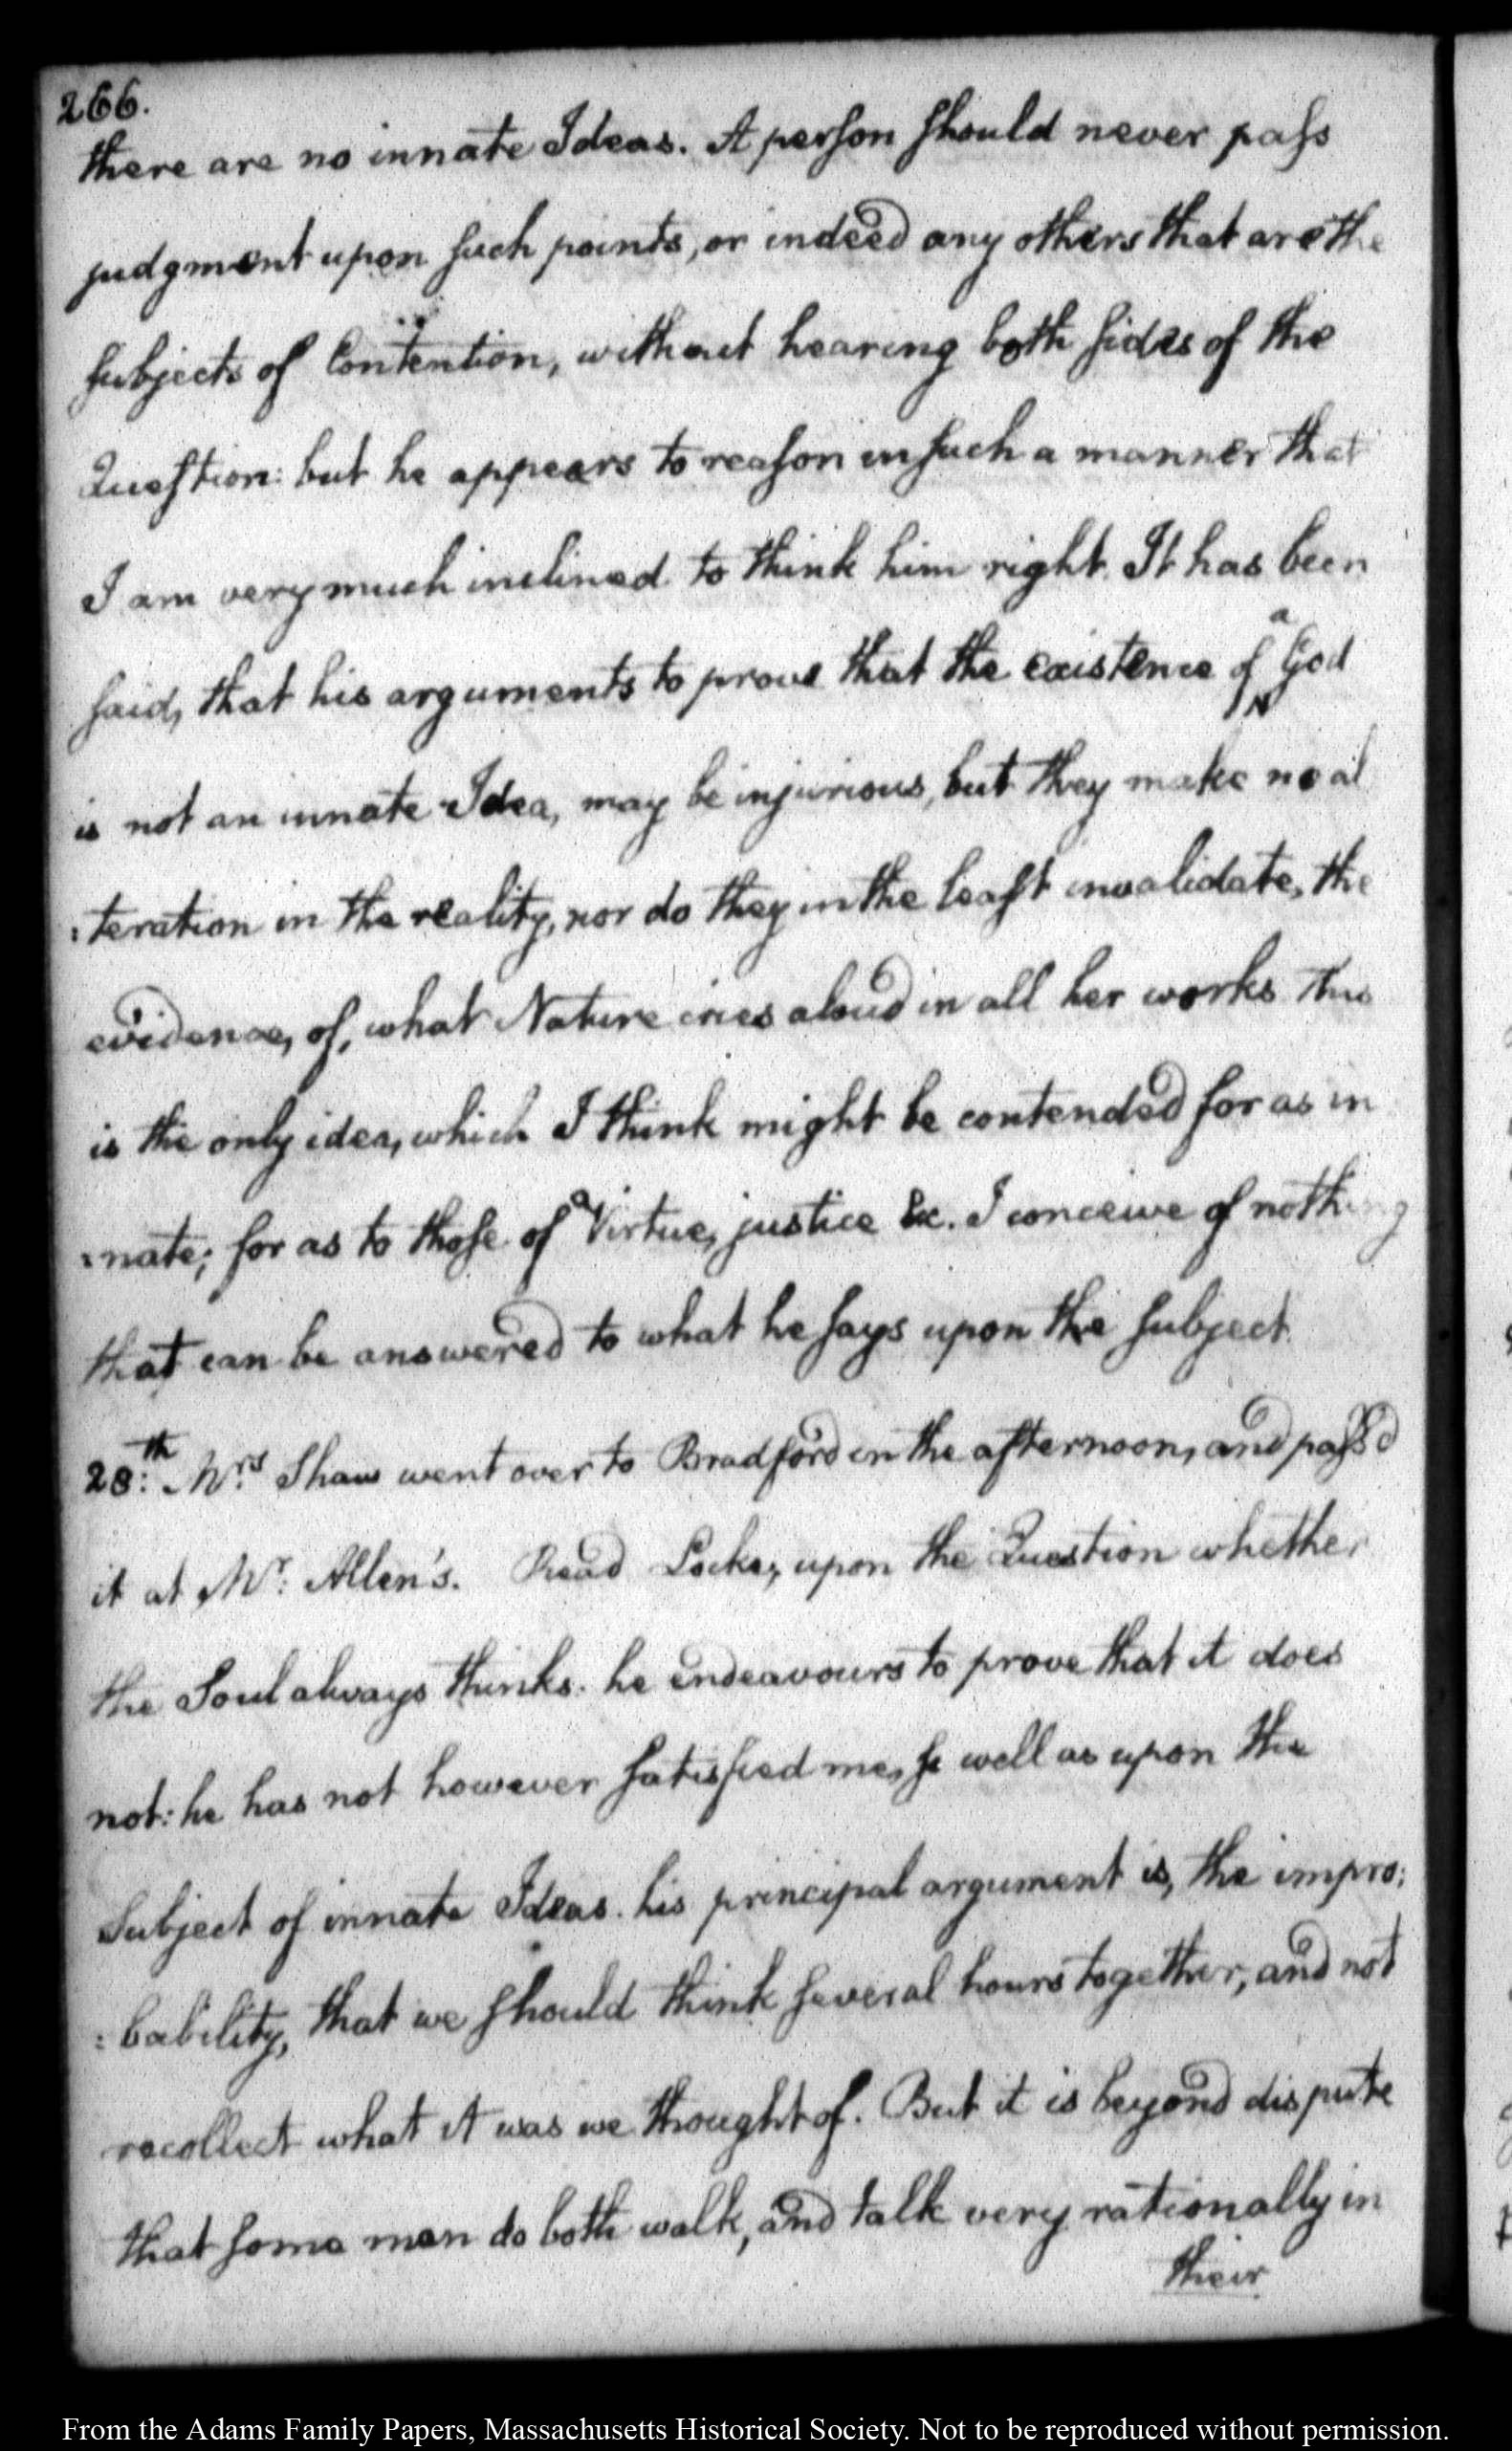 266.
there are no innate Ideas. A person should never pass
judgment upon such points, or indeed any others that are the
subjects of Contention, without hearing both sides of the
Question: but he appears to reason in such a manner that
I am very much inclined to think him right. It has been
said, that his arguments to prove that the existence of a God
is not an innate Idea, may be injurious, but they make no al
:teration in the reality, nor do they in the least invalidate, the
evidence, of, what Nature cries aloud in all her works this
is the only idea, which I think might be contended for as in
:nate; for as to those of Virtue, justice &c. I conceive of nothing
that can be answered to what he says upon the subject.
28:th Mrs. Shaw went over to Bradford in the afternoon, and pass'd
it at Mr: Allen's. Read Locke, upon the Question whether
the Soul always thinks: he endeavours to prove that it does
not: he has not however satisfied me, so well as upon the
Subject of innate Ideas. his principal argument is, the impro:
:bability, that we should think several hours together, and not
recollect what it was we thought of. But it is beyond dispute
that some men do both walk, and talk very rationally in
their
From the Adams Family Papers, Massachusetts Historical Society. Not to be reproduced without permission.